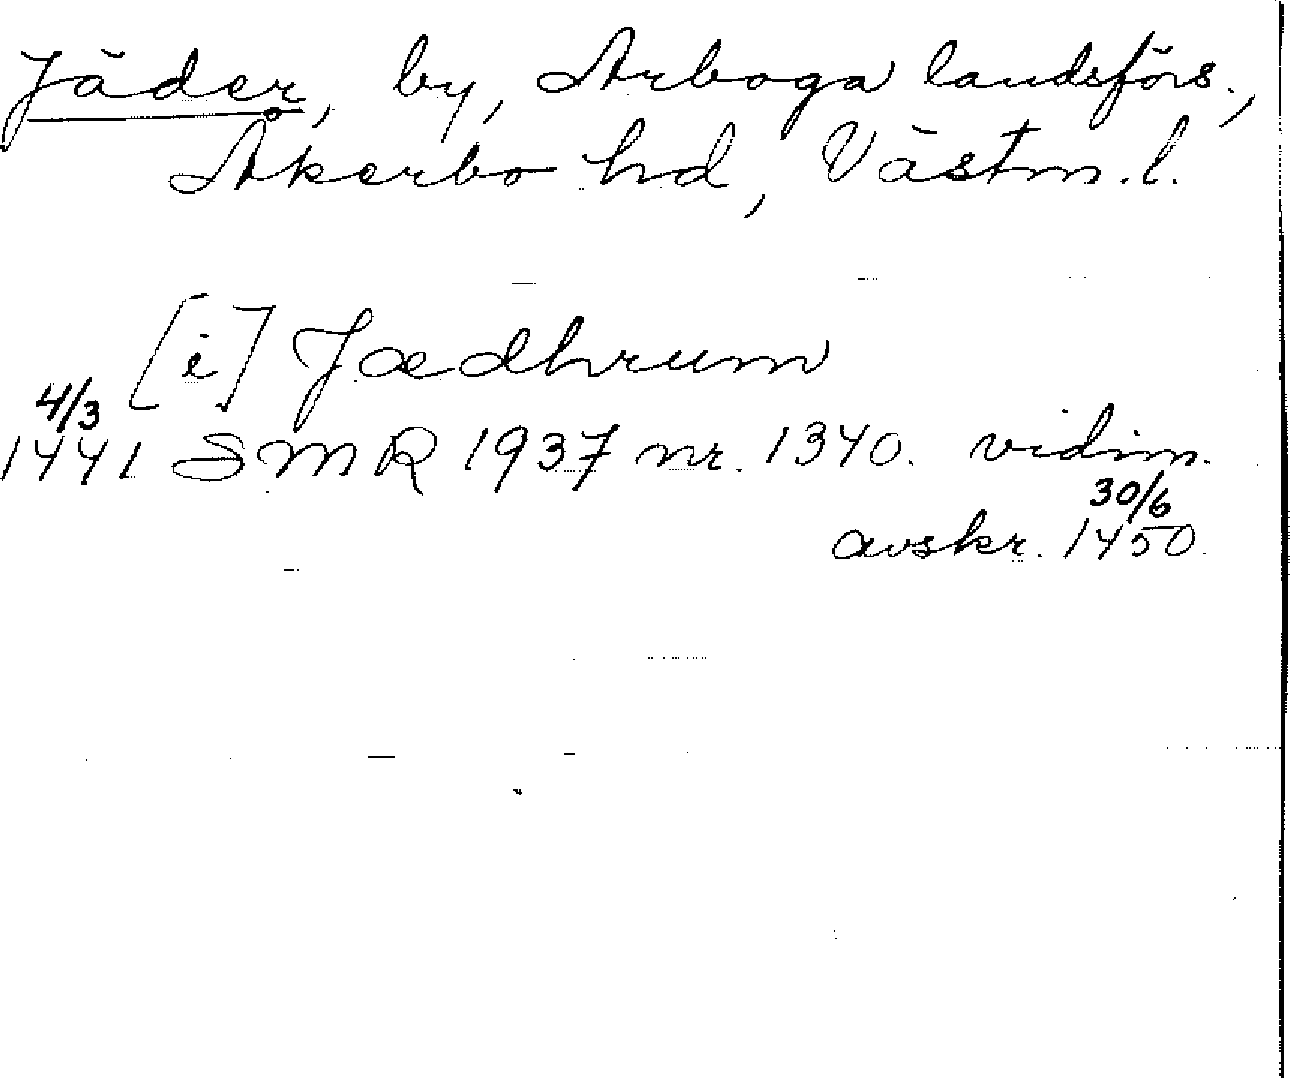 Jäder, by, Arboga landsförs.,
Åkerbo hd, Västm. l.
[i] Jædhrum
4/3
1441 SMR 1937 nr. 1340. vidim.
30/6
avskr. 1450.